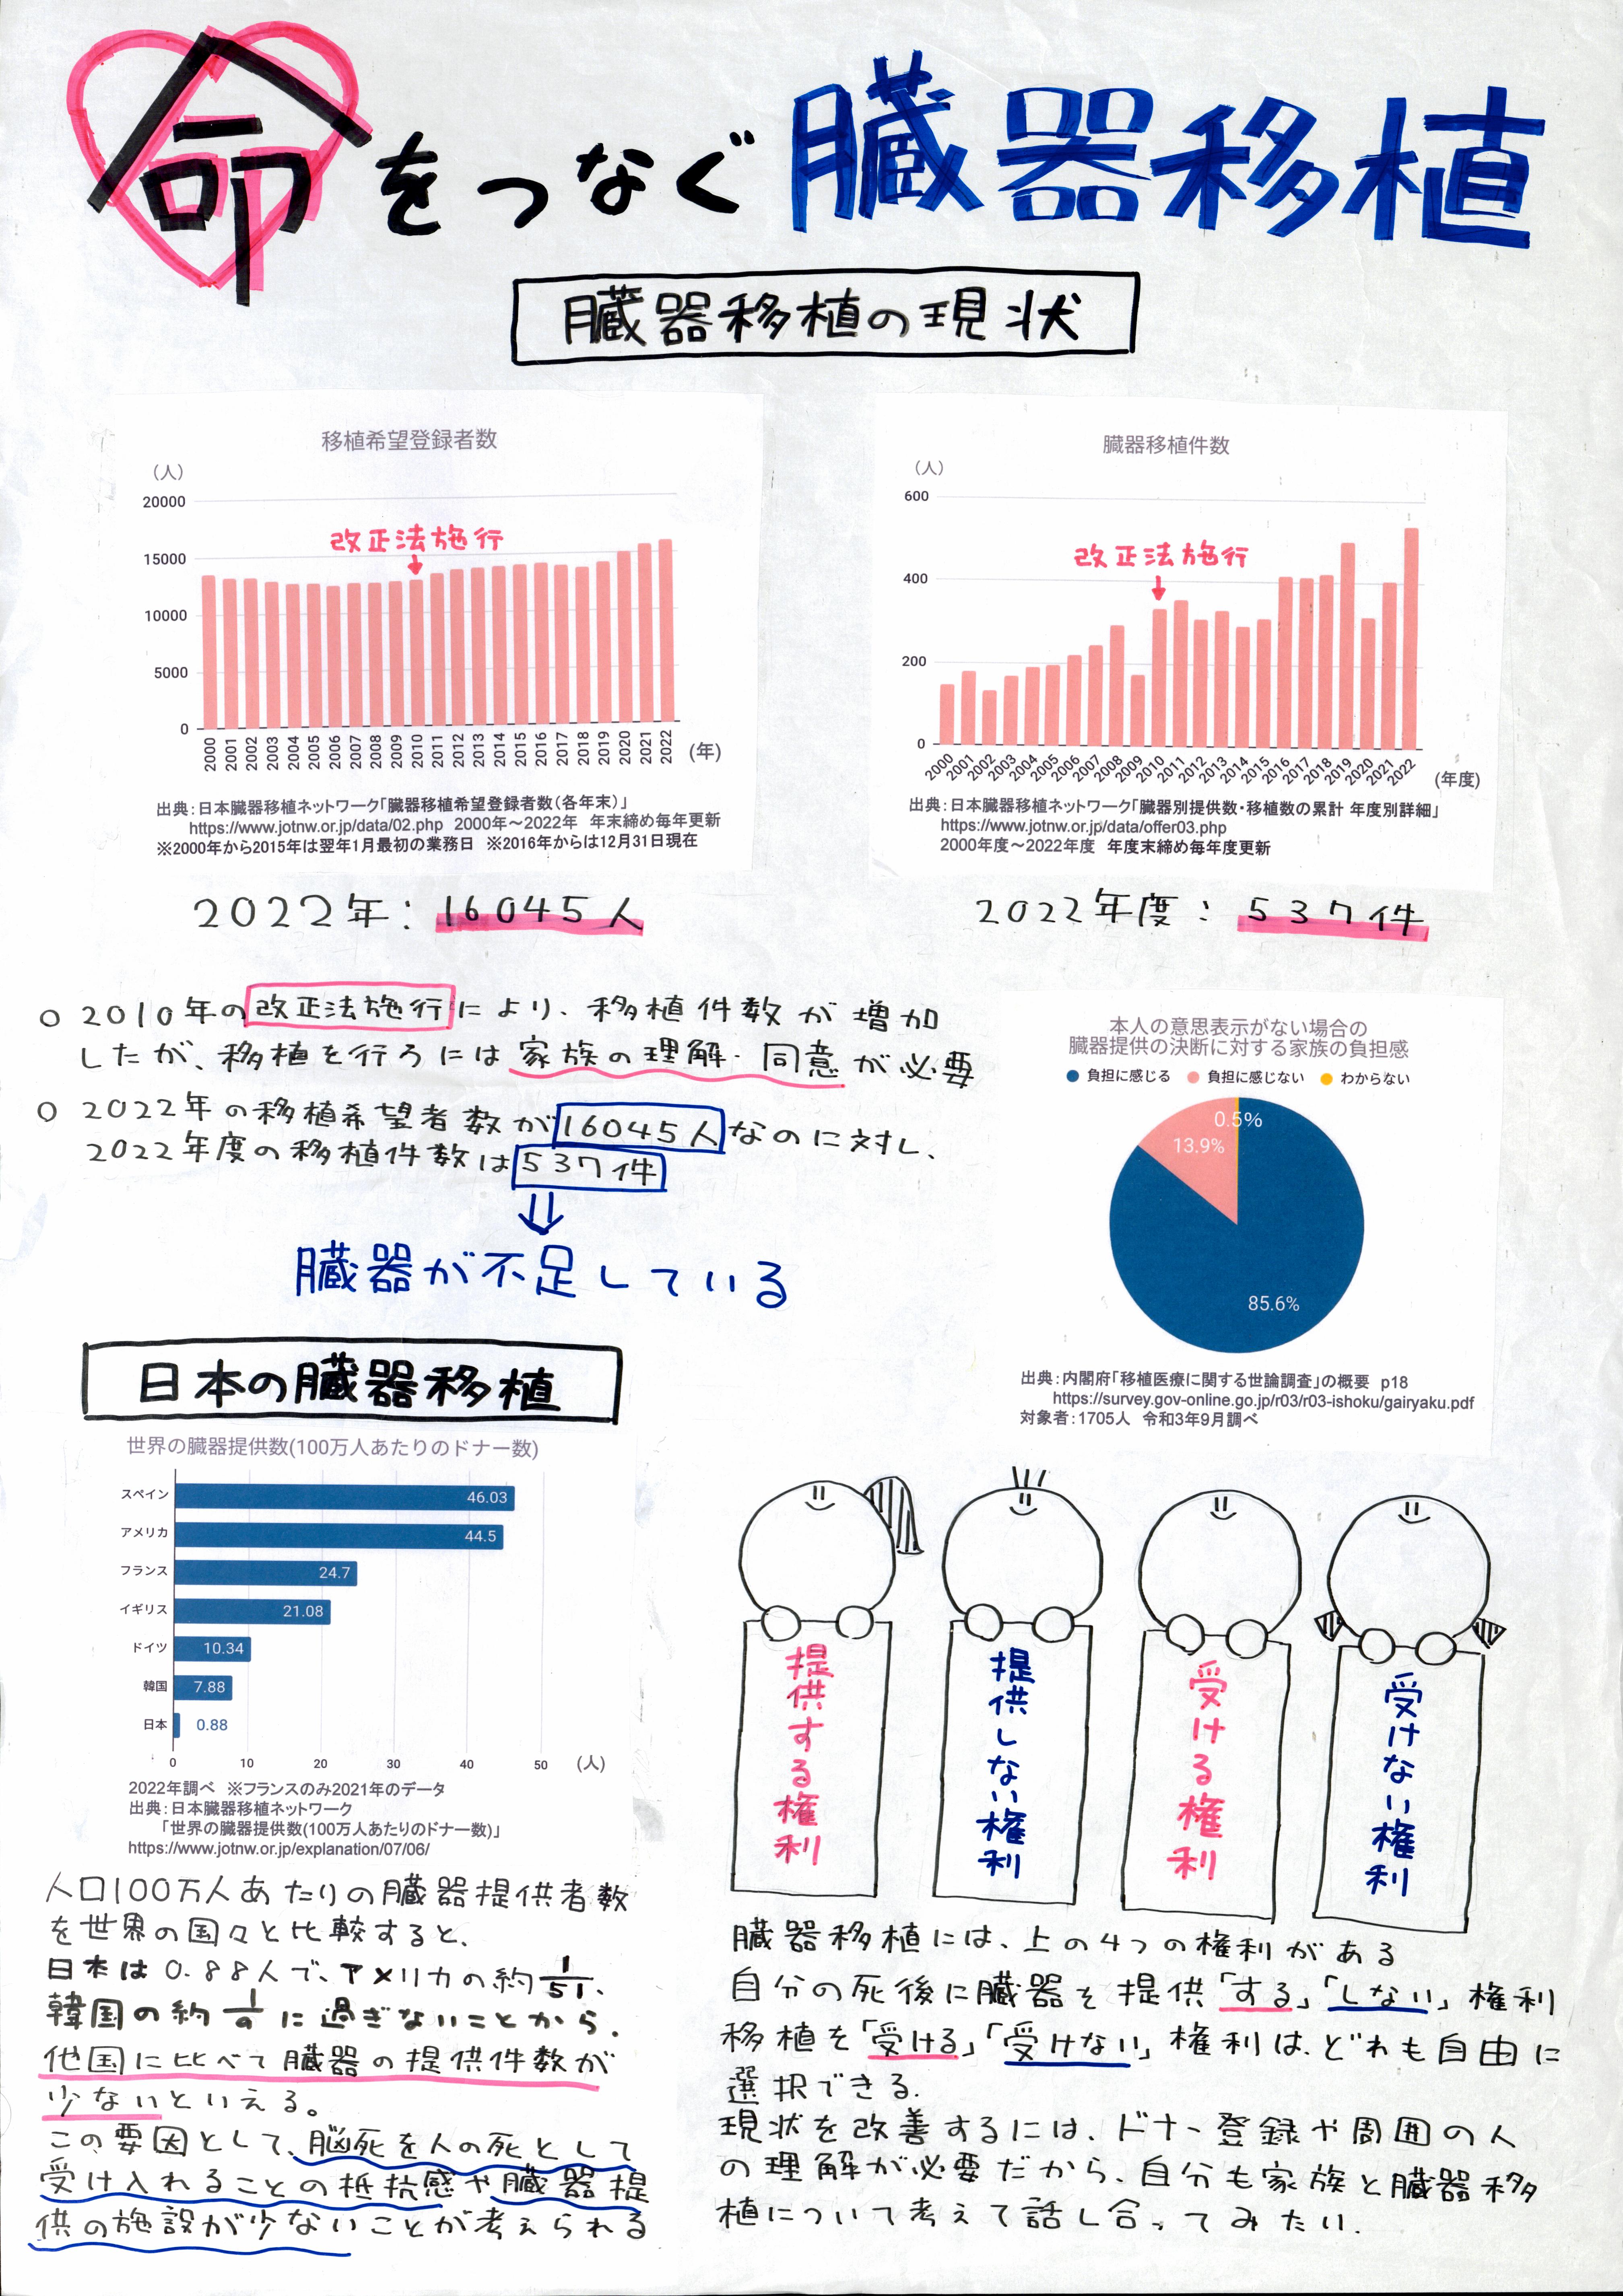 命をつなぐ臓器移植
臓器移植の現状
移植希望登録者数
（人）
20000
15000
10000
5000
0
改正法施行
2000 2001 2002 2003 2004 2005 2006 2007 2008 2009 2010 2011 2012 2013 2014 2015 2016 2017 2018 2019 2020 2021 2022 (年)
出典：日本臓器移植ネットワーク「臓器移植希望登録者数（各年末）」
https://www.jotnw.or.jp/data/02.php 2000年～2022年 年末締め毎年更新
※2000年から2015年は翌年1月最初の業務日 ※2016年からは12月31日現在
2022年：16045人
臓器移植件数
（人）
600
400
200
0
改正法施行
2000 2001 2002 2003 2004 2005 2006 2007 2008 2009 2010 2011 2012 2013 2014 2015 2016 2017 2018 2019 2020 2021 2022 (年度)
出典：日本臓器移植ネットワーク「臓器別提供数・移植数の累計 年度別詳細」
https://www.jotnw.or.jp/data/offer03.php
2000年度～2022年度 年度末締め毎年度更新
2022年度：537件
○ 2010年の改正法施行により、移植件数が増加
したが、移植を行うには家族の理解・同意が必要
○ 2022年の移植希望者数が16045人なのに対し、
2022年度の移植件数は537件
⇓
臓器が不足している
本人の意思表示がない場合の
臓器提供の決断に対する家族の負担感
負担に感じる 負担に感じない わからない
0.5%
13.9%
85.6%
出典：内閣府「移植医療に関する世論調査」の概要 p18
https://survey.gov-online.go.jp/r03/r03-ishoku/gairyaku.pdf
対象者：1705人 令和3年9月調べ
日本の臓器移植
世界の臓器提供数(100万人あたりのドナー数)
スペイン 46.03
アメリカ 44.5
フランス 24.7
イギリス 21.08
ドイツ 10.34
韓国 7.88
日本 0.88
0 10 20 30 40 50 (人)
2022年調べ ※フランスのみ2021年のデータ
出典：日本臓器移植ネットワーク
「世界の臓器提供数(100万人あたりのドナー数)」
https://www.jotnw.or.jp/explanation/07/06/
人口100万人あたりの臓器提供者数
を世界の国々と比較すると、
日本は0.88人で、アメリカの約1/51、
韓国の約1/9に過ぎないことから、
他国に比べて臓器の提供件数が
少ないといえる。
この要因として、脳死を人の死として
受け入れることの抵抗感や臓器提
供の施設が少ないことが考えられる
提供する権利
提供しない権利
受ける権利
受けない権利
臓器移植には、上の4つの権利がある
自分の死後に臓器を提供「する」「しない」権利
移植を「受ける」「受けない」権利は、どれも自由に
選択できる.
現状を改善するには、ドナー登録や周囲の人
の理解が必要だから、自分も家族と臓器移
植について考えて話し合ってみたい.